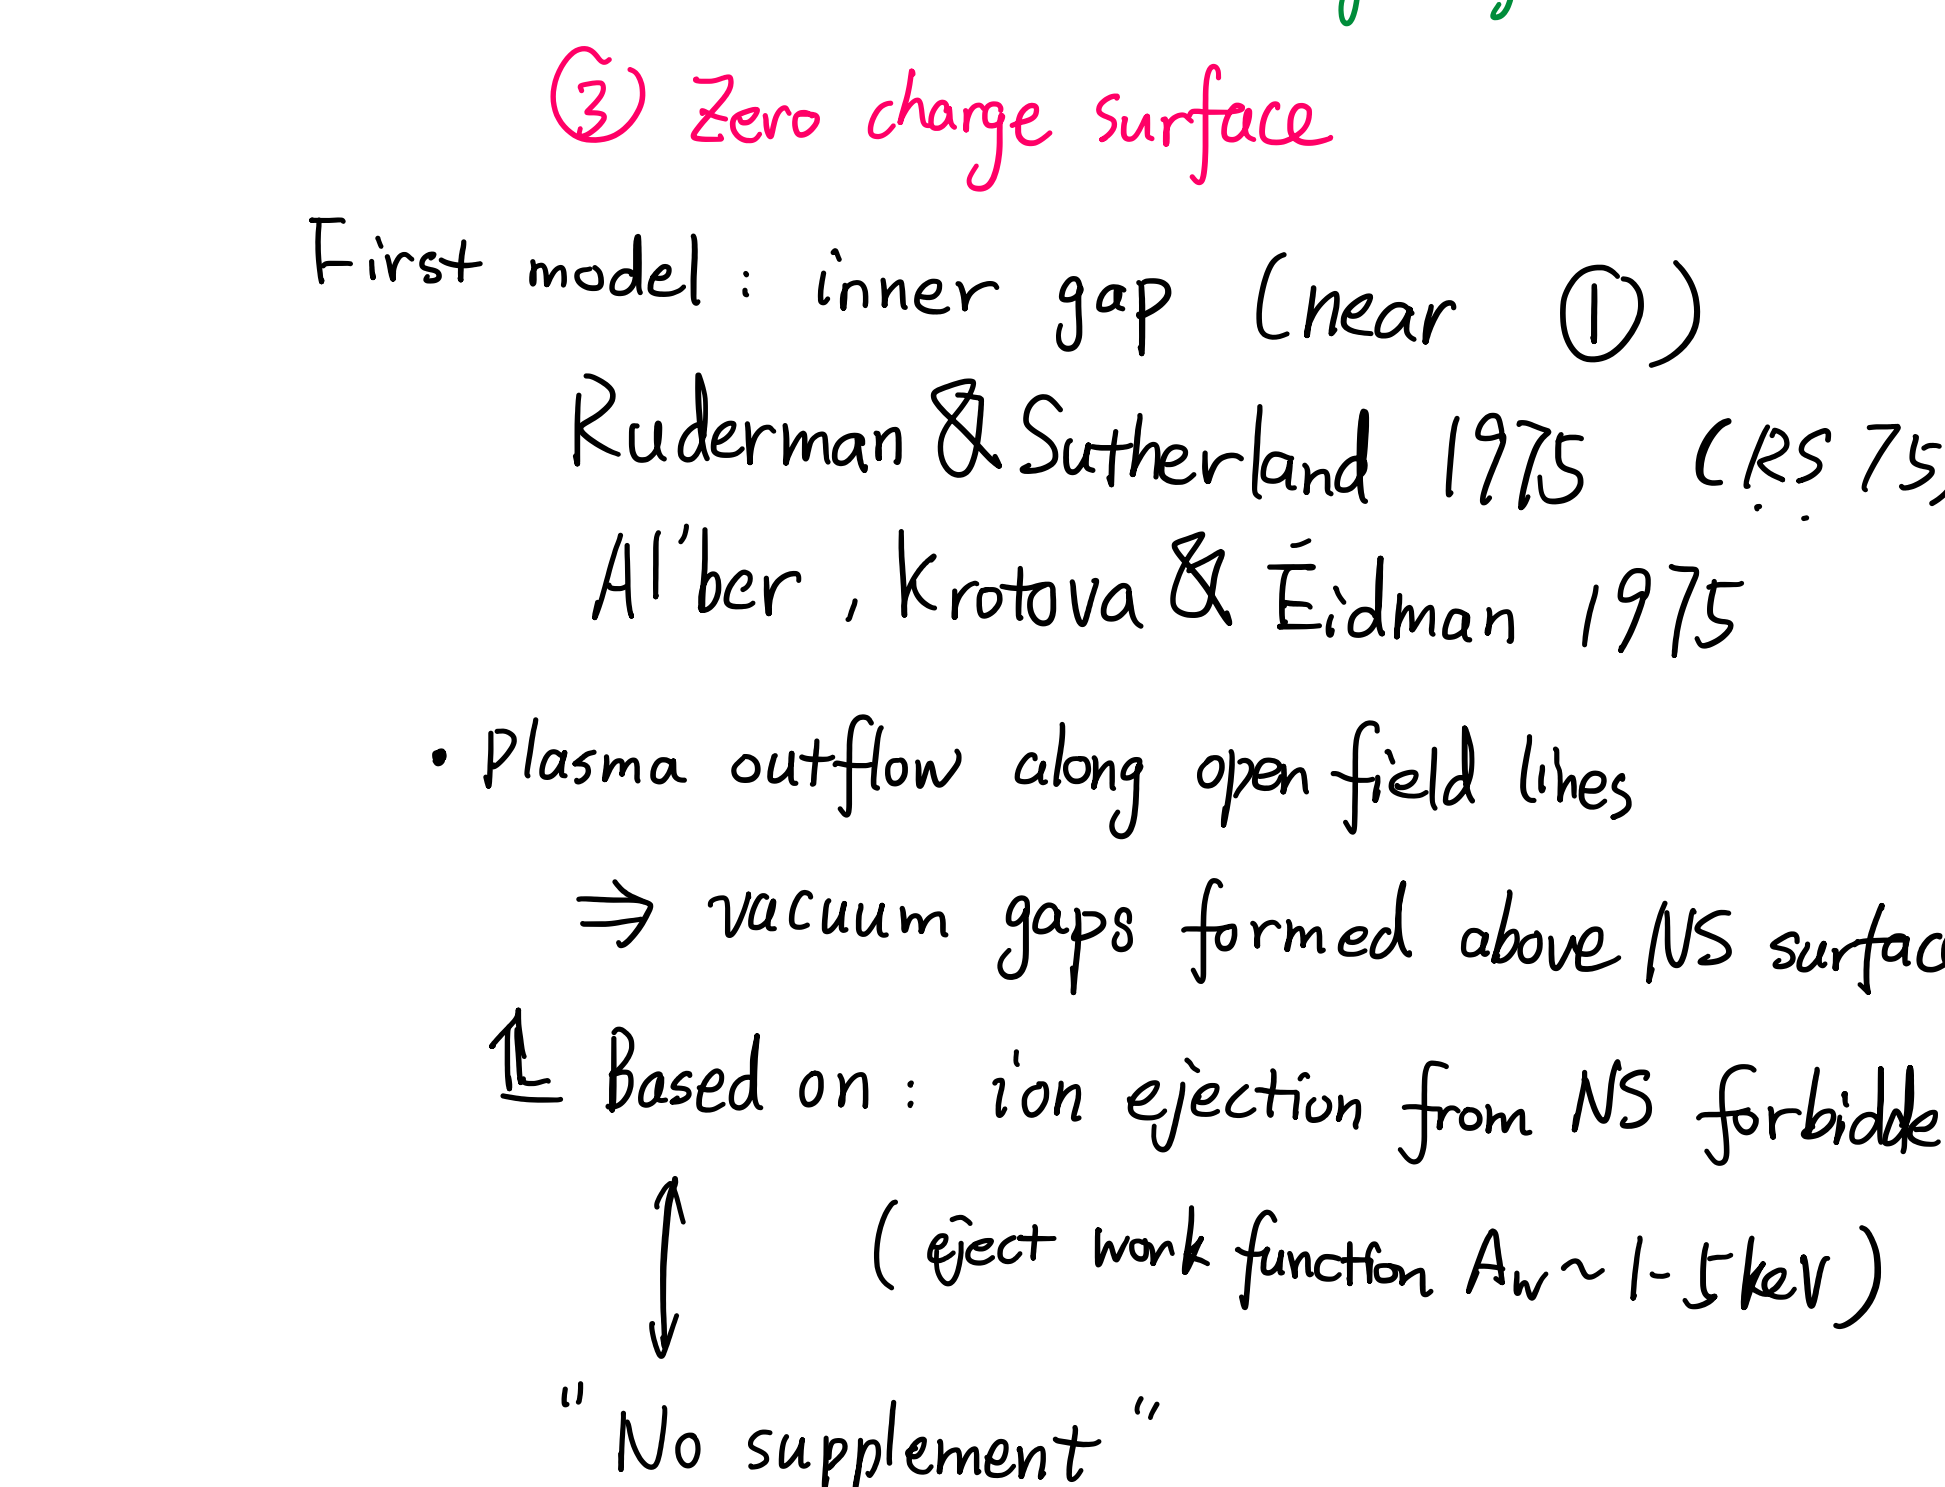 ③ Zero charge surface
First model : inner gap (near ①)
Ruderman & Sutherland 1975 (RS 75)
Al'ber, Krotova & Eidman 1975
• Plasma outflow along open field lines
⇒ vacuum gaps formed above NS surfac
⇑ Based on : ion ejection from NS forbidde
(eject work function Aw ~ 1-5 keV)
↕
"No supplement"